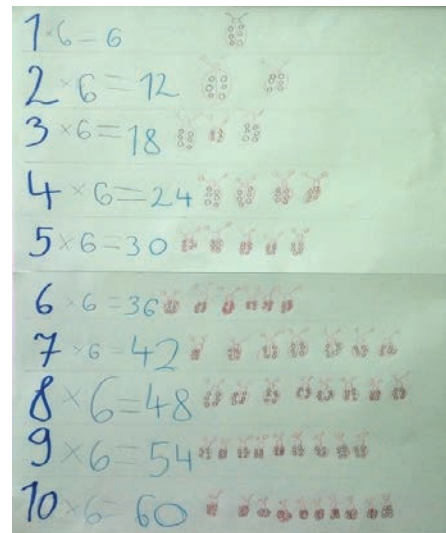 1 × 6 = 6
2 × 6 = 12
3 × 6 = 18
4 × 6 = 24
5 × 6 = 30
6 × 6 = 36
7 × 6 = 42
8 × 6 = 48
9 × 6 = 54
10 × 6 = 60